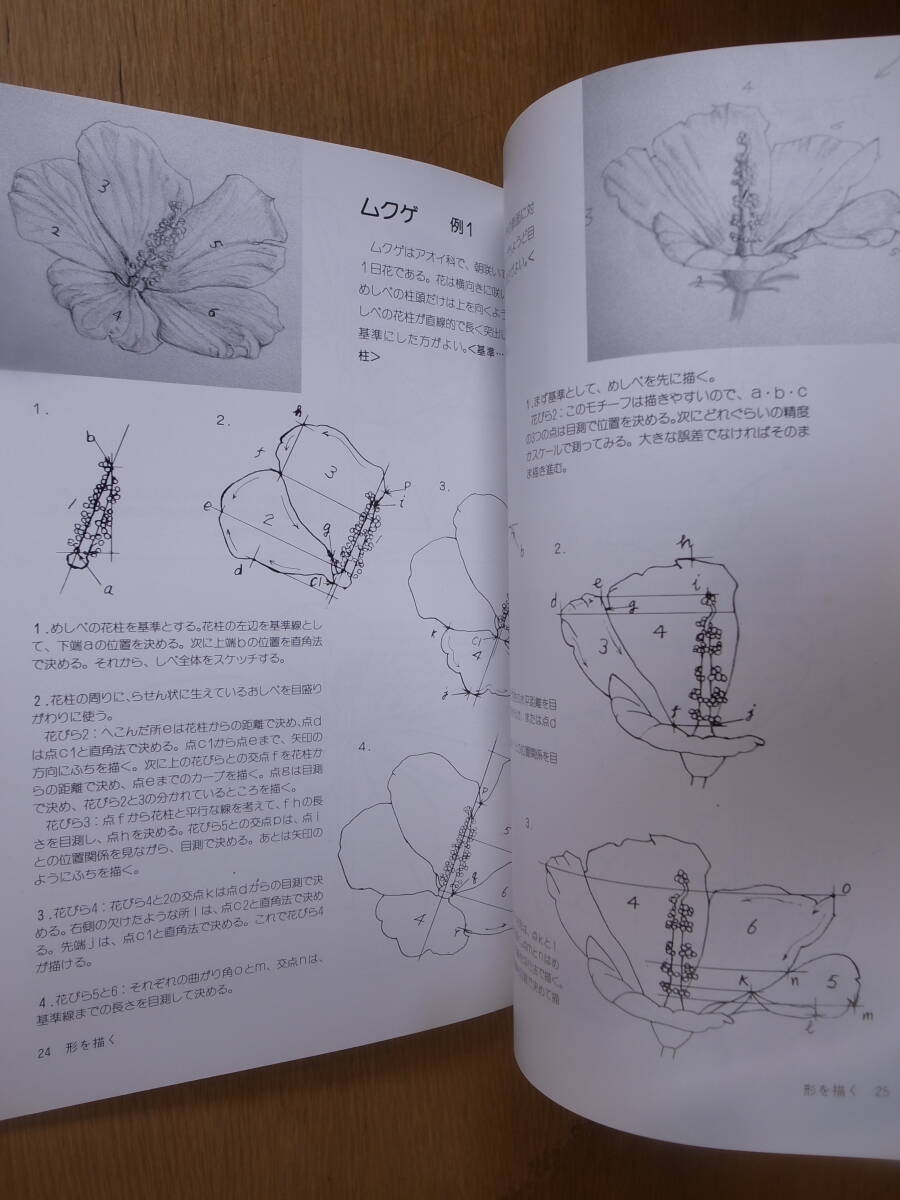 3
2
5
4
6
ムクゲ 例1
ムクゲはアオイ科で、朝咲い
1日花である。花は横向きに咲
めしべの柱頭だけは上を向くよ
しべの花柱が直線的で長く突出し
基準にした方がよい。<基準…
柱>
1.
b
1
a
2.
h
f
3
e
2
g
d
c1
i
p
3.
k
c1
4
j
b
1.めしべの花柱を基準とする。花柱の左辺を基準線とし
て、下端aの位置を決める。次に上端bの位置を直角法
で決める。それから、しべ全体をスケッチする。
2.花柱の周りに、らせん状に生えているおしべを目盛り
がわりに使う。
花びら2:へこんだ所eは花柱からの距離で決め、点d
は点c1と直角法で決める。点c1から点eまで、矢印の
方向にふちを描く。次に上の花びらとの交点fを花柱か
らの距離で決め、点eまでのカーブを描く。点gは目測
で決め、花びら2と3の分かれているところを描く。
花びら3:点fから花柱と平行な線を考えて、fhの長
さを目測し、点hを決める。花びら5との交点pは、点i
との位置関係を見ながら、目測で決める。あとは矢印の
ようにふちを描く。
3.花びら4:花びら4と2の交点kは点dからの目測で決
める。右側の欠けたような所lは、点c2と直角法で決め
る。先端jは、点c1と直角法で決める。これで花びら4
が描ける。
4.花びら5と6:それぞれの曲がり角oとm、交点nは、
基準線までの長さを目測して決める。
4.
p
5
q
6
4
r
24 形を描く
4
6
3
5
2
に対
ようど目
がよい。<
1.まず基準として、めしべを先に描く。
花びら2:このモチーフは描きやすいので、a・b・c
の3つの点は目測で位置を決める。次にどれぐらいの精度
かスケールで測ってみる。大きな誤差でなければそのま
ま描き進む。
2.
h
e
i
d
g
4
3
f
j
距離を目
または点d
位置関係を目
3.
4
o
6
k
n
5
l
m
点kとl
mとnはめ
法で描く。
決めて描
形を描く 25